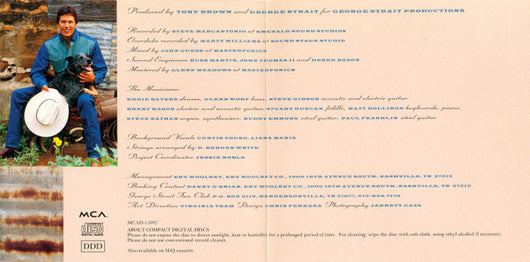 Produced by TONY BROWN and GEORGE STRAIT for GEORGE STRAIT PRODUCTIONS
Recorded by STEVE MARCANTONIO at EMERALD SOUND STUDIOS
Overdubs recorded by MARTY WILLIAMS at SOUND STAGE STUDIO
Mixed by JOHN GUESS at MASTERFONICS
Second Engineers RUSS MARTIN, JOHN THOMAS II and DEREK BASON
Mastered by GLENN MEADOWS at MASTERFONICS
The Musicians:
EDDIE BAYERS drums, GLENN WORF bass, STEVE GIBSON acoustic and electric guitar
BRENT MASON electric and acoustic guitar, STUART DUNCAN fiddle, MATT ROLLINGS keyboards, piano,
STEVE NATHAN organ, synthesizer, BUDDY EMMONS steel guitar, PAUL FRANKLIN steel guitar
Background Vocals CURTIS YOUNG, LIANA MANIS
Strings arranged by D. BERGEN WHITE
Project Coordinator JESSIE NOBLE
Management ERV WOOLSEY, ERV WOOLSEY CO., 1000 18TH AVENUE SOUTH, NASHVILLE, TN 37212
Booking Contact DANNY O'BRIAN, ERV WOOLSEY CO., 1000 18TH AVENUE SOUTH, NASHVILLE, TN 37212
George Strait Fan Club P.O. BOX 2119, HENDERSONVILLE, TN 37077,
Art Direction VIRGINIA TEAM Design CHRIS FERRARA Photography JARRETT GAZA
MCA
COMPACT
disc
DIGITAL AUDIO
DDD
MCAD-11092
ABOUT COMPACT DIGITAL DISCS
Please do not expose the disc to direct sunlight, heat or humidity for a prolonged period of time. For cleaning, wipe the disc with soft cloth, using ethyl alcohol if necessary.
Please do not use conventional record cleaner.
Also available on HiQ cassette.